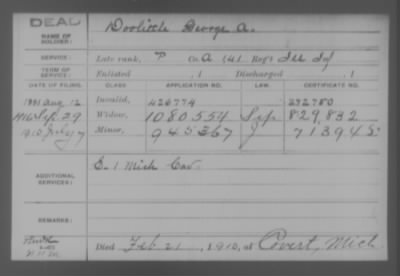 DEAD
NAME OF SOLDIER: Doolittle George A.
SERVICE: Late rank, P Co. A 141 Reg't Ill Inf
TERM OF SERVICE: Enlisted , 1 Discharged , 1
DATE OF FILING. CLASS. APPLICATION NO. LAW. CERTIFICATE NO.
1881 Aug. 12 Invalid, 426774 232780
1916 Sep. 29 Widow, 1080554 Sep 829,832
1910 July 7 Minor, 945367 713948
ADDITIONAL SERVICES: E. 1 Mich Cav.
REMARKS:
Died Feb. 21, 1910, at Covert, Mich.